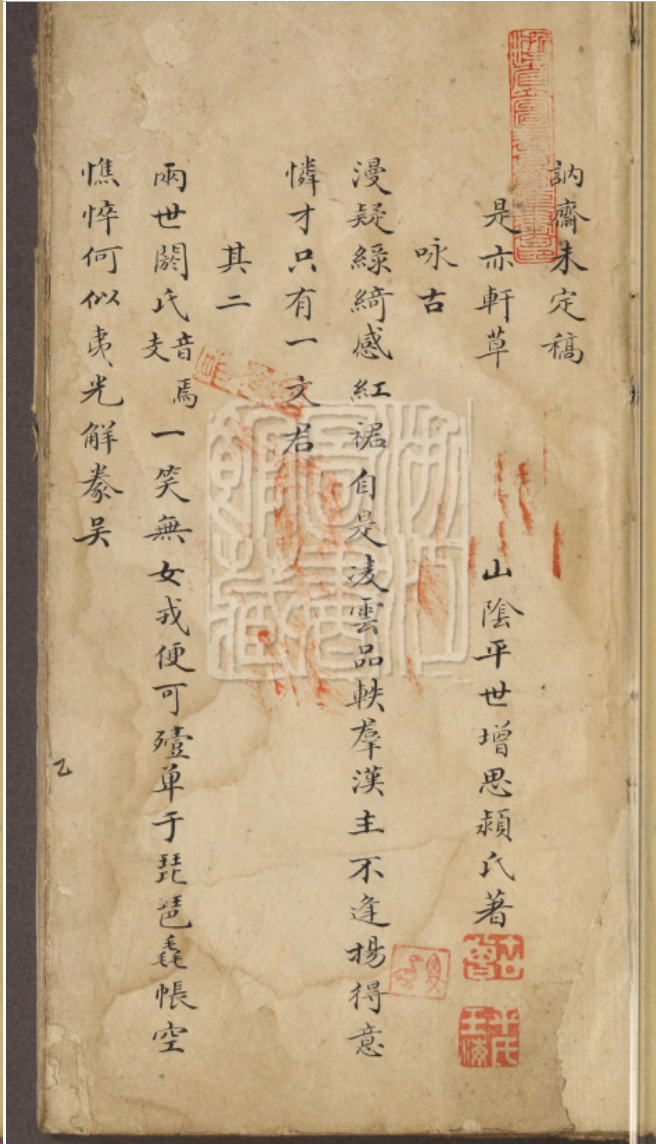 訥齋未定稿
是亦軒草 山陰平世增思頴氏著
咏古
漫疑綠綺感紅裙自是凌雲品軼羣漢主不逢揚得意
憐才只有一文君
其二
兩世閼氏音焉支一笑無女戎便可殪单于琵琶毳帳空
憔悴何似夷光解豢吴
浙江圖書館藏